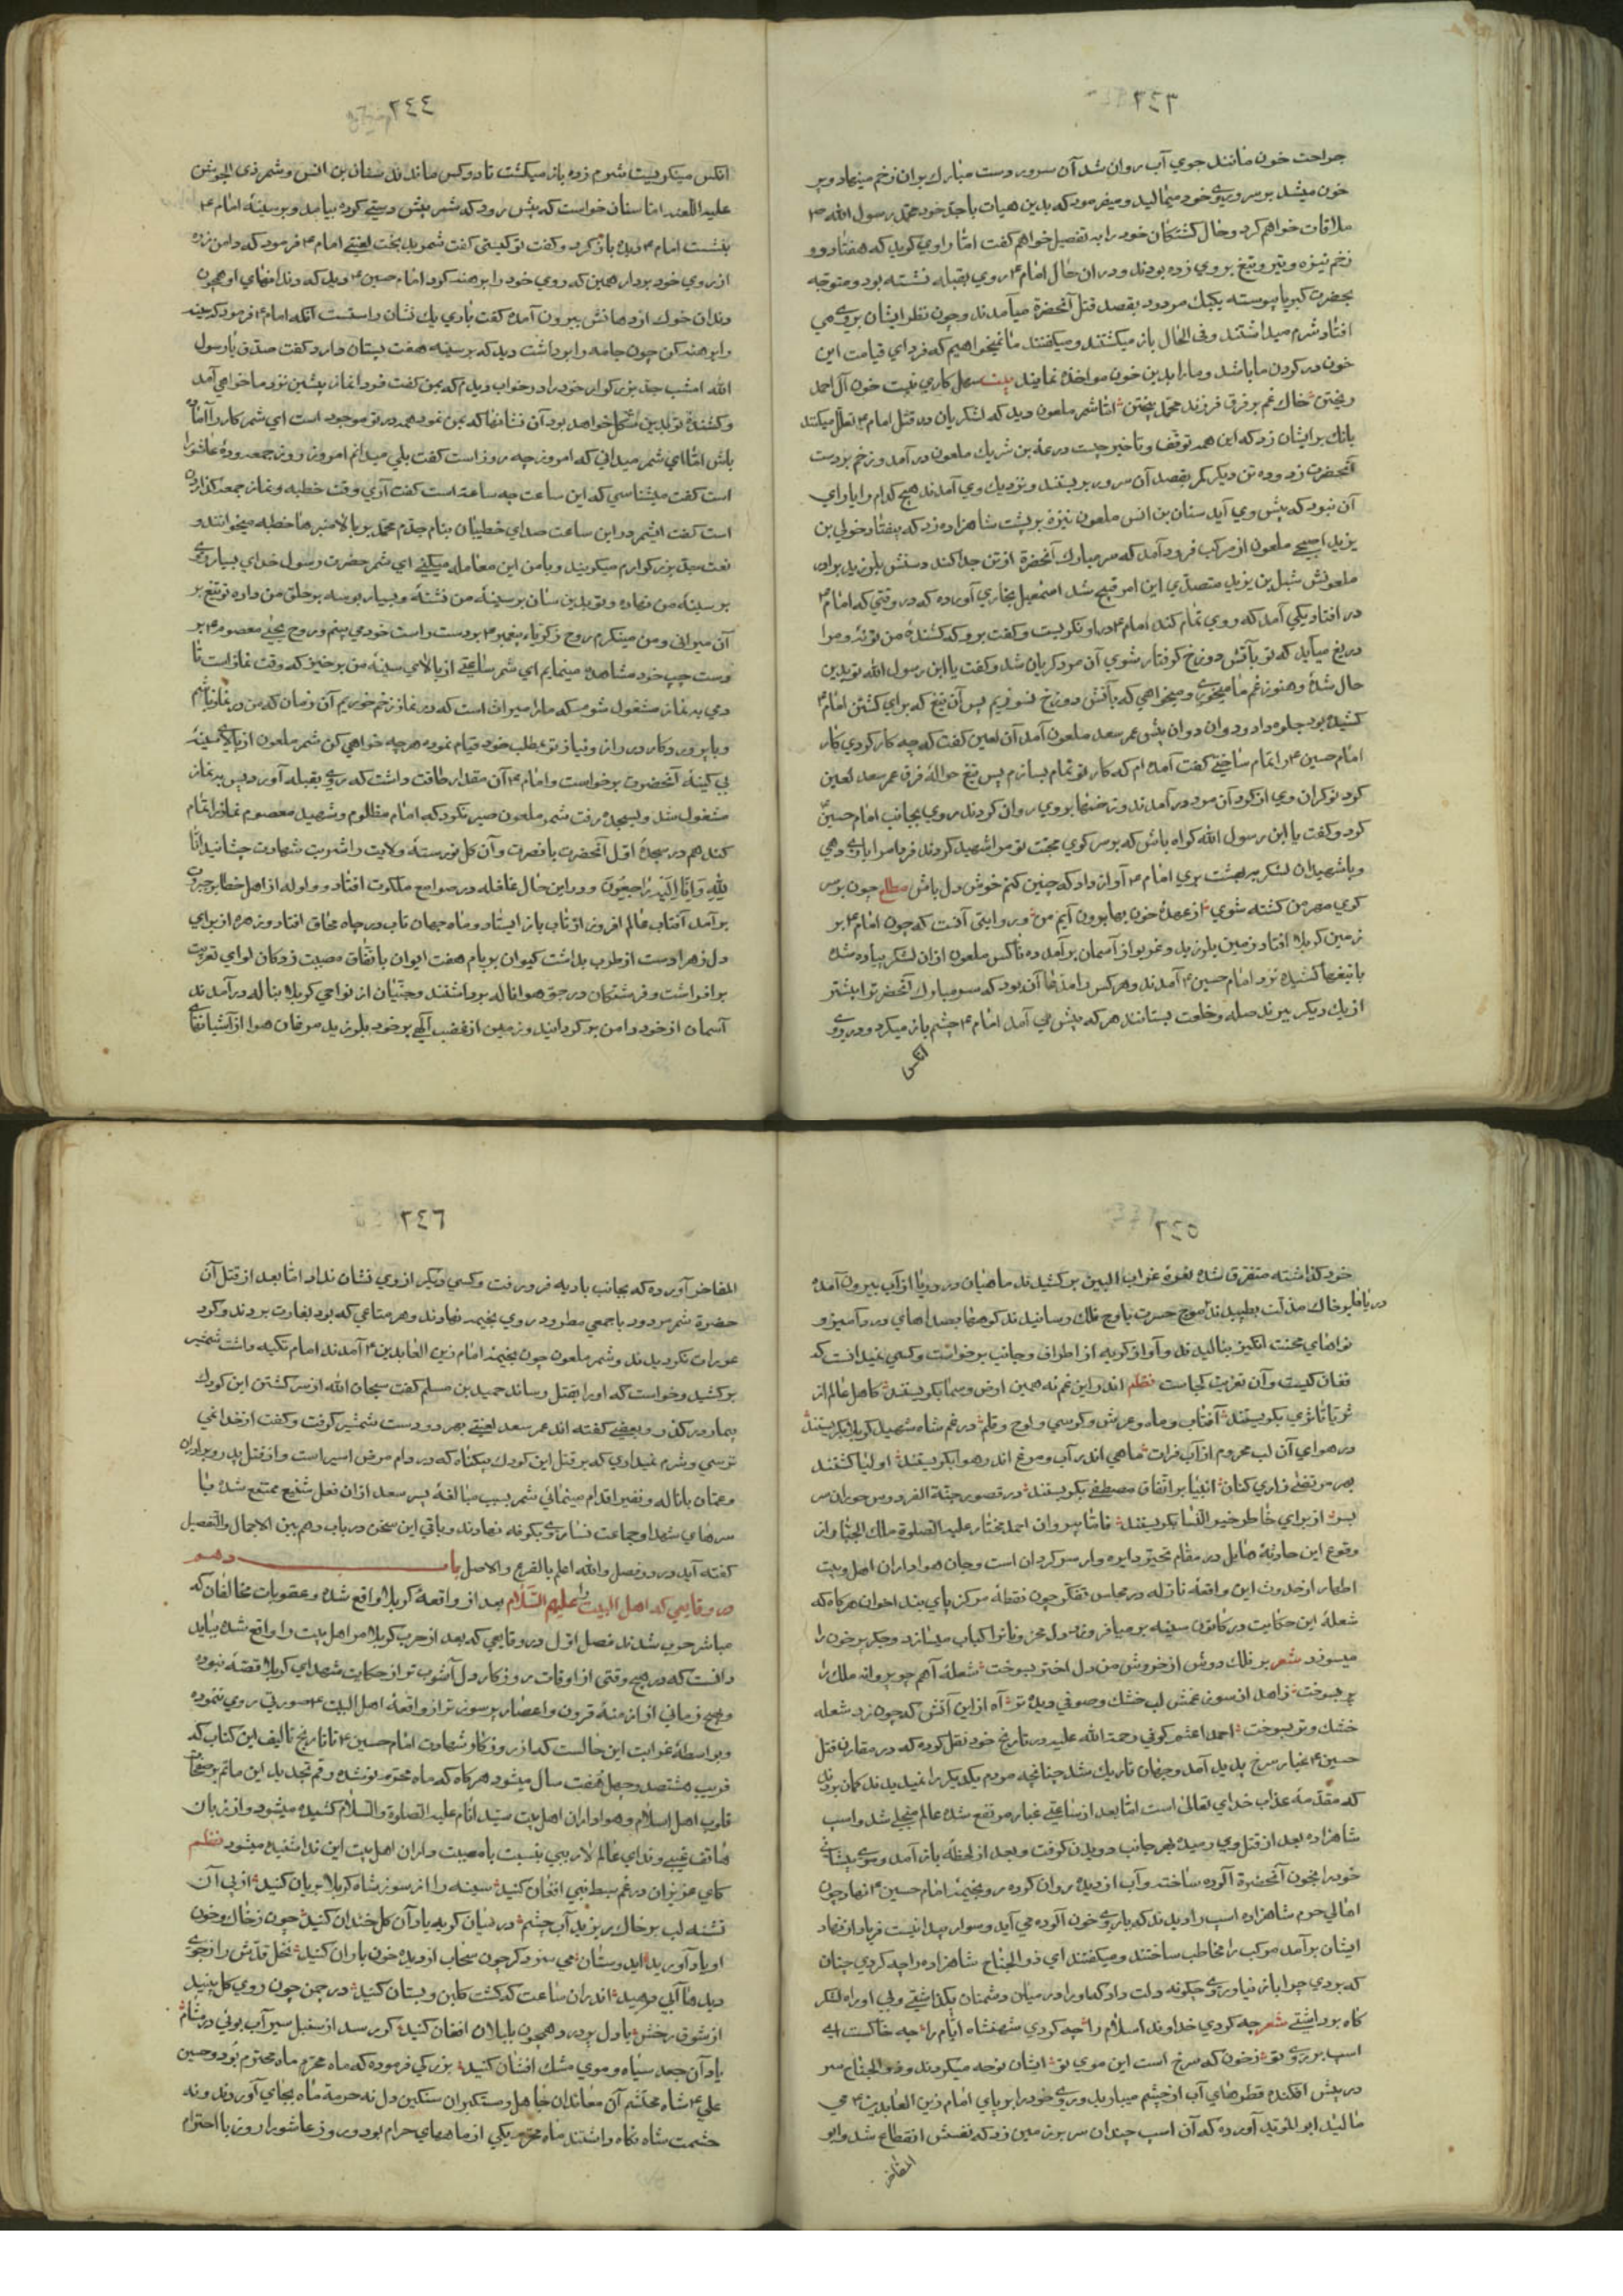 ٢٤٣
جراحت خون مانند جوي آب روان شد آن سرور دست مبارك بران زخم مينهاد و پر
خون ميشد بر سر و روي خود ميماليد و ميفرمود كه بدين هيات با جد خود محمد رسول الله ص
ملاقات خواهم كرد و حال كشتگان خود را به تفصيل خواهم گفت اما راوي گويد كه هفتاد و دو
زخم نيزه و تير و تيغ بر وي زده بودند و دران حال امام ع روي بقبله نشسته بود و متوجه
بحضرت كبريا پيوسته يكيك مردود بقصد قتل آنحضرة ميآمدند و چون نظر ايشان بر وي مي
افتاد شرم ميداشتند و في الحال باز ميگشتند و ميگفتند ما نميخواهيم كه فرداي قيامت اين
خون در گردن ما باشد و ما را بدين خون مواخذه نمايند بيت سهل كاري نيست خون آل احمد
ريختن خاك غم بر فرق فرزند محمد بيختن اما شمر ملعون ديد كه لشكريان در قتل امام ع تعلل ميكنند
بانك بر ايشان زد كه اين همه توقف و تاخير چيست درعة بن شريك ملعون در آمد و زخم بر دست
آنحضرت زد و ده تن ديگر كمر بقصد آن سرور بر بستند و نزديك وي آمدند هيچ كدام را ياراي
آن نبود كه پيش وي آيد سنان بن انس ملعون نيزة بر پشت شاهزاده زد كه بيفتاد خولي بن
يزيد اصبحي ملعون از مركب فرود آمد كه سر مبارك آنحضرة از تن جدا كند دستش بلرزيد برادر
ملعونش شبل بن يزيد متصدي اين امر قبيح شد اسمعيل بخاري آورده كه در وقتي كه امام ع
در افتاد يكي آمد كه وي را تمام كند امام ع در او نگريست و گفت برو كه كشنده من تو نه و مرا
دريغ ميآيد كه تو بآتش دوزخ گرفتار شوي آن مرد گريان شد و گفت يا ابن رسول الله تو بدين
حال شدة و هنوز غم ما ميخوري و ميخواهي كه بآتش دوزخ نسوزيم پس آن تيغ كه براي كشتن امام ع
كشيده بود جلو داد و دوان دوان پيش عمر سعد ملعون آمد آن لعين گفت كه چه كار كردي كار
امام حسين ع را تمام ساختي گفت آمده ام كه كار تو تمام بسازم پس تيغ حوالة فرق عمر سعد لعين
كرد نوكران وي از گرد آن مرد در آمدند و زخمها بر وي روان كردند روي بجانب امام حسين
كرد و گفت يا ابن رسول الله گواه باش كه بر سر كوي محبت تو مرا شهيد كردند فردا مرا ياري دهي
و با شهيدان لشكر ببهشت بري امام ع آواز داد كه چنين كنم خوش دل باش مطلع چون بر سر
كوي مهر من كشته شوي از عهدة خون بها برون آيم من و روايتي آنست كه چون امام ع بر
زمين كربلا افتاد زمين بلرزيد و غريو از آسمان بر آمد ده ناكس ملعون ازان لشكر پياده شده
با تيغها كشيده نزد امام حسين ع آمدند و هر كس را مدعا آن بود كه سر مبارك آنحضرت را پيشتر
از يك ديگر ببرند صله و خلعت بستانند هر كه پيش مي آمد امام ع چشم باز ميكرد و در وي
انكس
٢٤٤
انكس مينگريست شرم زده باز ميگشت تا دو كس ماندند سنان بن انس و شمر ذي الجوشن
عليه اللعنه اما سنان خواست كه پيش رود كه شمر پيش دستي كرده بيامد و بر سينه امام ع
بنشست امام ع ديده باز كرد و گفت تو كيستي گفت شمر بدبخت لعنتي امام ع فرمود كه دامن زره
از روي خود بردار همين كه روي خود را برهنه كرد امام حسين ع ديد كه دندانهاي او همچون
دندان خوك از دهانش بيرون آمده گفت باري يك نشان راستست انگه امام ع فرمود كه سينه
را برهنه كن چون جامه را برداشت ديد كه بر سينه هفت پستان دارد گفت صدق يا رسول
الله امشب جد بزرگوار خود را در خواب ديدم كه بمن گفت فردا نماز پيشين نزد ما خواهي آمد
و كشندة تو بدين شكل خواهد بود آن نشانها كه بمن نمود همه در تو موجود است اي شمر كار را آماده
باش اما اي شمر ميداني كه امروز چه روز است گفت بلي ميدانم امروز روز جمعه و روز عاشورا
است گفت ميشناسي كه اين ساعت چه ساعة است گفت آري وقت خطبه و نماز جمعه گذاردن
است گفت اي شمر در اين ساعت صداي خطيبان بنام جدم محمد بر بالا منبرها خطبه ميخوانند و
نعت جد بزرگوارم ميگويند و با من اين معامله ميكني اي شمر حضرت رسول خداي بسيار روي
بر سينه من نهاده و تو بدين سان بر سينة من نشسته و بسيار بوسه بر حلق من داده تو تيغ بر
آن ميراني و من مينگرم روح زكرياء پيغمبر ع بر دست راست خود مي بينم و روح يحيي معصوم ع بر
دست چپ خود مشاهدة مينمايم اي شمر ساعتي از بالاي سينه من برخيز كه وقت نماز است تا
دمي بد نماز مشغول شوم كه ما را ميراث است كه در نماز زخم خوريم آن زمان كه من در نماز باشم
و با پرورد گار در راز و نياز توء بطلب خود قيام نموده هر چه خواهي كن شمر ملعون از بالاي سينه
بي كينه آنحضرت برخواست و امام ع آن مقدار طاقت داشت كه روي بقبله آورد پس بد نماز
مشغول شد و بسجده رفت شمر ملعون صبر نكرد كه امام مظلوم و شهيد معصوم نماز را تمام
كند هم در سجده اول آنحضرت با نصرت و آن گل نو رسته ولايت را شربت شهادت چشانيد انا
لله و انا اليه راجعون و در اين حال غلغله در صوامع ملكوت افتاد و ولوله از اهل خطاير جبروت
بر آمد آفتاب عالم افروز از تاب باز ايستاد و ماه جهان تاب در چاه محاق افتاد و زهره از براي
دل زهرا دست از طرب بداشت كيوان بر بام هفت ايوان باتفاق مصيبت زدگان لواي تعزيت
بر افراشت و فرشتگان در جو هوا ناله برداشتند و جنيان از نواحي كربلا بناله در آمدند
آسمان از خود دامن پر گردانيد و زمين از غضب الهي بر خود بلرزيد مرغان هوا از آشيانهاي
٢٤٥
خود گذاشته متفرق شده نعرة غراب البين بركشيدند ماهيان در دريا از آب بيرون آمده
در ناله بر خاك مذلت بطپيدند موج حسرت باوج فلك رسانيدند كوهها بصداهاي درد آميز و
نواهاي محنت انگيز بناليدند و آواز گريه از اطراف و جانب برخواست و كسي نميدانست كه
فغان كيست و آن تعزيت كجاست نظم اند راين غم نه همين ارض و سما بگريستند كاهل عالم از
ثريا تا ثري بگريستند آفتاب و ماه و عرش و كرسي و لوح و قلم در غم شاه شهيد كربلا بگريستند
در هواي آن لب محروم از آب فرات ماهي اندر آب و مرغ اندر هوا بگريستند اوليا گشتند
بهر مرتضي زاري كنان انبيا بر اتفاق مصطفي بگريستند در قصور جنة الفردوس حوران سر
بسر از براي خاطر خير النسا بگريستند قاتا پيروان احمد مختار عليه الصلوة ملك الجبار از
وقوع اين حادثة هايل در مقام تحير دايره وار سرگردان است و جان هواداران اهل و بيت
اطهار از حدوث اين واقعة نازله در مجالس تفكر چون نقطة مركز پاي بند احزان هر گاه كه
شعلة اين حكايت در كانون سينه بر ميافروزد دل محزونان را كباب ميسازد و جگر پر خون را
ميسوزد شعر بر فلك دوش از خروش من دل اختر بسوخت شعلة آهم چو پروانه ملك را
پر بسوخت زاهد از سوز غمش لب خشك و صوفي ديده تر آه از اين آتش كه چون زد شعله
خشك و تر بسوخت احمد اعثم كوفي رحمة الله عليه در تاريخ خود نقل كرده كه در مقارن قتل
حسين ع غبار سرخ پديد آمد و جهان تاريك شد چنانچه مردم يكديگر را نميديدند گمان بردند
كه مقدمة عذاب خداي تعالي است اما بعد از ساعتي غبار مرتفع شده عالم منجلي شد و اسب
شاهزاده بعد از قتل وي رميده بهر جانب دويدن گرفت و بعد از لحظة باز آمد و موي پيشاني
خود را بخون آنحضرة آلوده ساخته و آب از ديده روان كرده رو بخيمة امام حسين ع نهاد چون
اهالي حرم شاهزاده اسب را ديدند كه با روي خون آلوده مي آيد و سوار پيدا نيست فرياد از نهاد
ايشان بر آمد مركب را مخاطب ساختند و ميگفتند اي ذو الجناح شاهزاده را چه كردي چنان
كه بردي چرا باز نياوردي و چگونه دلت داد كه او را در ميان دشمنان بگذاشتي و بي او راه لشكر
گاه برداشتي شعر چه كردي خداوند اسلام را چه كردي شهنشاه ايام را چه خاكست اي
اسب بر روي تو ز خون كه سرخ است اين موي تو ايشان نوحه ميكردند و ذو الجناح سر
در پيش افكنده قطرهاي آب از چشم ميباريد و روي خود را بر پاي امام زين العابدين ع مي
ماليد ابو المؤيد آورده كه آن اسب چندان سر بر زمين زد كه نفسش انقطاع شد و ابو
المفاخر
٢٤٦
المفاخر آورده كه بجانب باديه فرو رفت و كسي ديگر از وي نشان نداد اما بعد از قتل آن
حضرة شمر مردود با جمعي مطرود روي بخيمه نهادند و هر متاعي كه بود بغارت بردند و گرد
عورات نگرديدند و شمر ملعون چون بخيمة امام زين العابدين ع آمدند امام تكيه داشت شمشير
بركشيد و خواست كه او را بقتل رساند حميد بن مسلم گفت سبحان الله از سر كشتن اين كودك
بيمار در گذر و بعضي گفته اند عمر سعد لعنتي بهر دو دست شمشير گرفت و گفت از خدا نمي
ترسي و شرم نميداري كه بر قتل اين كودك بيگناه كه در دام مرض اسير است و از قتل پدر و برادران
و عمان با ناله و نفير اقدام مينمائي شمر بسبب مبالغة پسر سعد ازان فعل شنيع ممتنع شده با
سرهاي شهدا و جماعت نسا روي بكوفه نهادند و باقي اين سخن در باب دهم بين الاجمال و التفصيل
گفته آيد در دو فصل و الله اعلم بالفرع و الاصل باب دهم
در وقايعي كه اهل البيت را عليهم السلام بعد از واقعة كربلا واقع شده و عقوبات مخالفان كه
مباشر حرب شدند فصل اول در وقايعي كه بعد از حرب كربلا مر اهل بيت را واقع شده ببايد
دانست كه در هيچ وقتي از اوقات روزگار دل آشوب تر از حكايت شهداي كربلا قصه نبوده
و هيچ زماني از ازمنة قرون و اعصار پر سوز تر از واقعة اهل البيت ع صورتي روي ننموده
و بواسطة غرابت اين حالست كه از روزگار شهادت امام حسين ع تا تاريخ تاليف اين كتاب كه
قريب هشتصد و چهل و هفت سال ميشود هر گاه كه ماه محرم نو شده رقم تجديد اين ماتم بر صفحات
قلوب اهل اسلام و هواداران اهل بيت سيد انام عليه الصلوة و السلام كشيده ميشود و از زبان
هاتف غيبي و نداي عالم لاريبي نسبت با مصيبت داران اهل بيت اين ندا شنيده ميشود نظم
كاي عزيزان در غم سبط نبي افغان كنيد سينه را از سوز شاه كربلا بريان كنيد از پي آن
تشنه لب بر خاك بر يزيد آب چشم در ميان گريه ياد آن گل خندان كنيد چون ز خاك و خون
او ياد آوريد ايد دوستان مي سزد گر چون سحاب از ديده خون باران كنيد نخل قدش را ز جوي
ديدها آبي دهيد اندر ان ساعت كه گشت گلبن و بستان كنيد در چمن چون روي گل بينيد
از شوق رخش با دل پر درد همچون بلبلان افغان كنيد گر رسد از سنبل سيراب بوئي در مشام
ياد آن جعد سياه و موي مشك افشان كنيد بزرگي فرموده كه ماه محرم ماه محترم بود و حسين
علي ع شاه محتشم آن معاندان جاهل و ستمگران سنگين دل نه حرمة ماه بجاي آوردند و نه
حشمت شاه نگاه داشتند ماه محرم يكي از ماههاي حرام بود و روز عاشورا روز با احترام